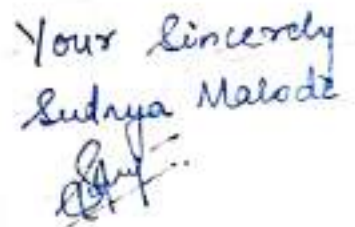 Your Sincerely
Sudnya Malode